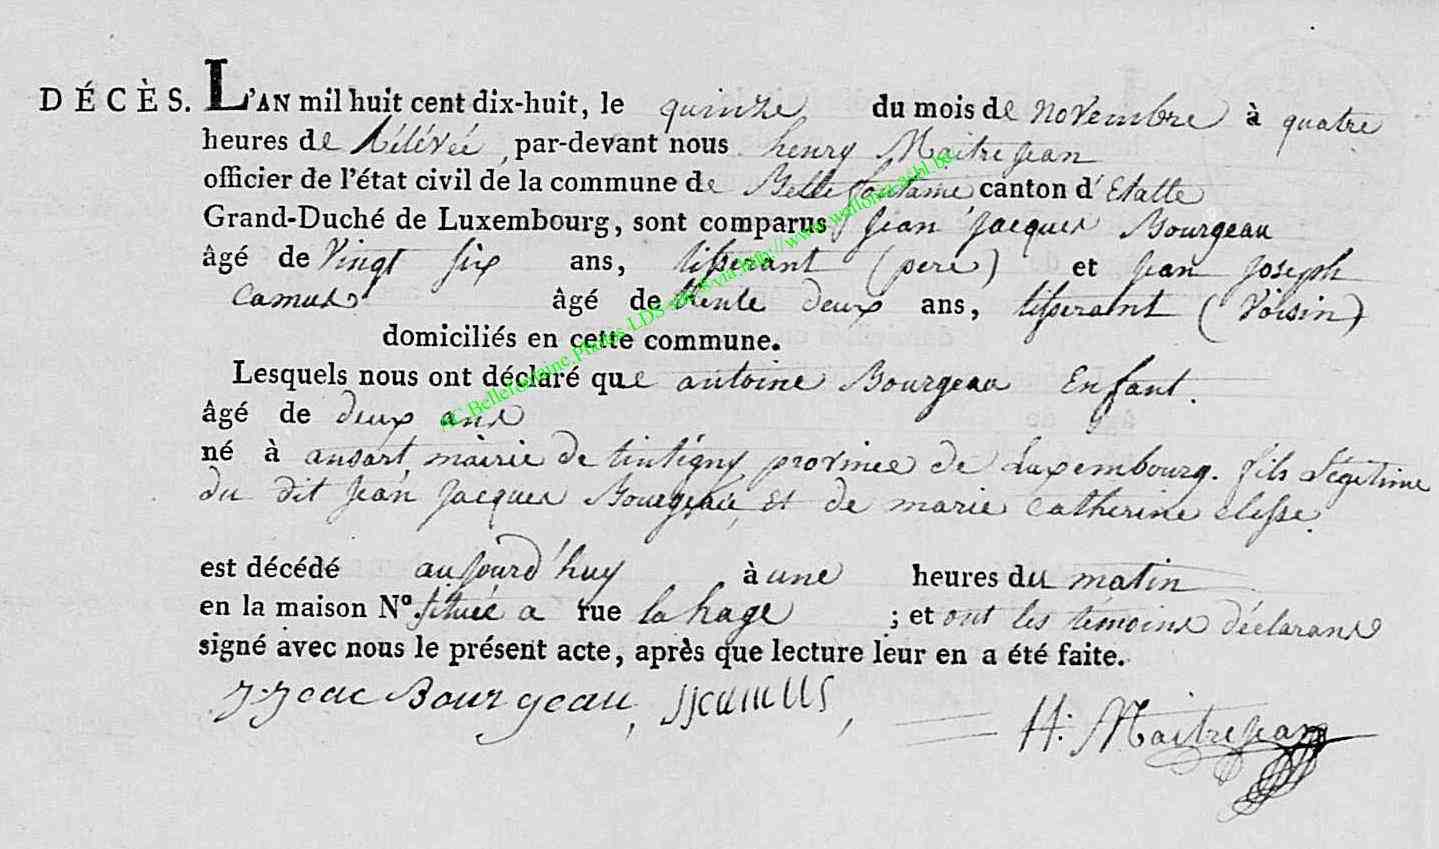 DÉCÈS. L'AN mil huit cent dix-huit, le quinze du mois de novembre à quatre
heures de Rélévée, par-devant nous henry Maitrejean
officier de l'état civil de la commune de Bellefontaine canton d'Etalle
Grand-Duché de Luxembourg, sont comparus Jean Jacques Bourgeau
âgé de Vingt six ans, tisserant (pere) et Jean Joseph
Camus âgé de trente deux ans, tisserant (Voisin)
domiciliés en cette commune.
Lesquels nous ont déclaré que antoine Bourgeau Enfant.
âgé de deux ans
né à ansart, mairie de tintigny province de Luxembourg. fils Légitime
du dit Jean Jacques Bourgeau, et de marie Catherine
est décédé aujourd'huy à une heures du matin
en la maison No. située a rue la hage ; et ont les temoins déclarans
signé avec nous le présent acte, après que lecture leur en a été faite.
Bourgeau, JJCAMUS,
H: Maitrejean